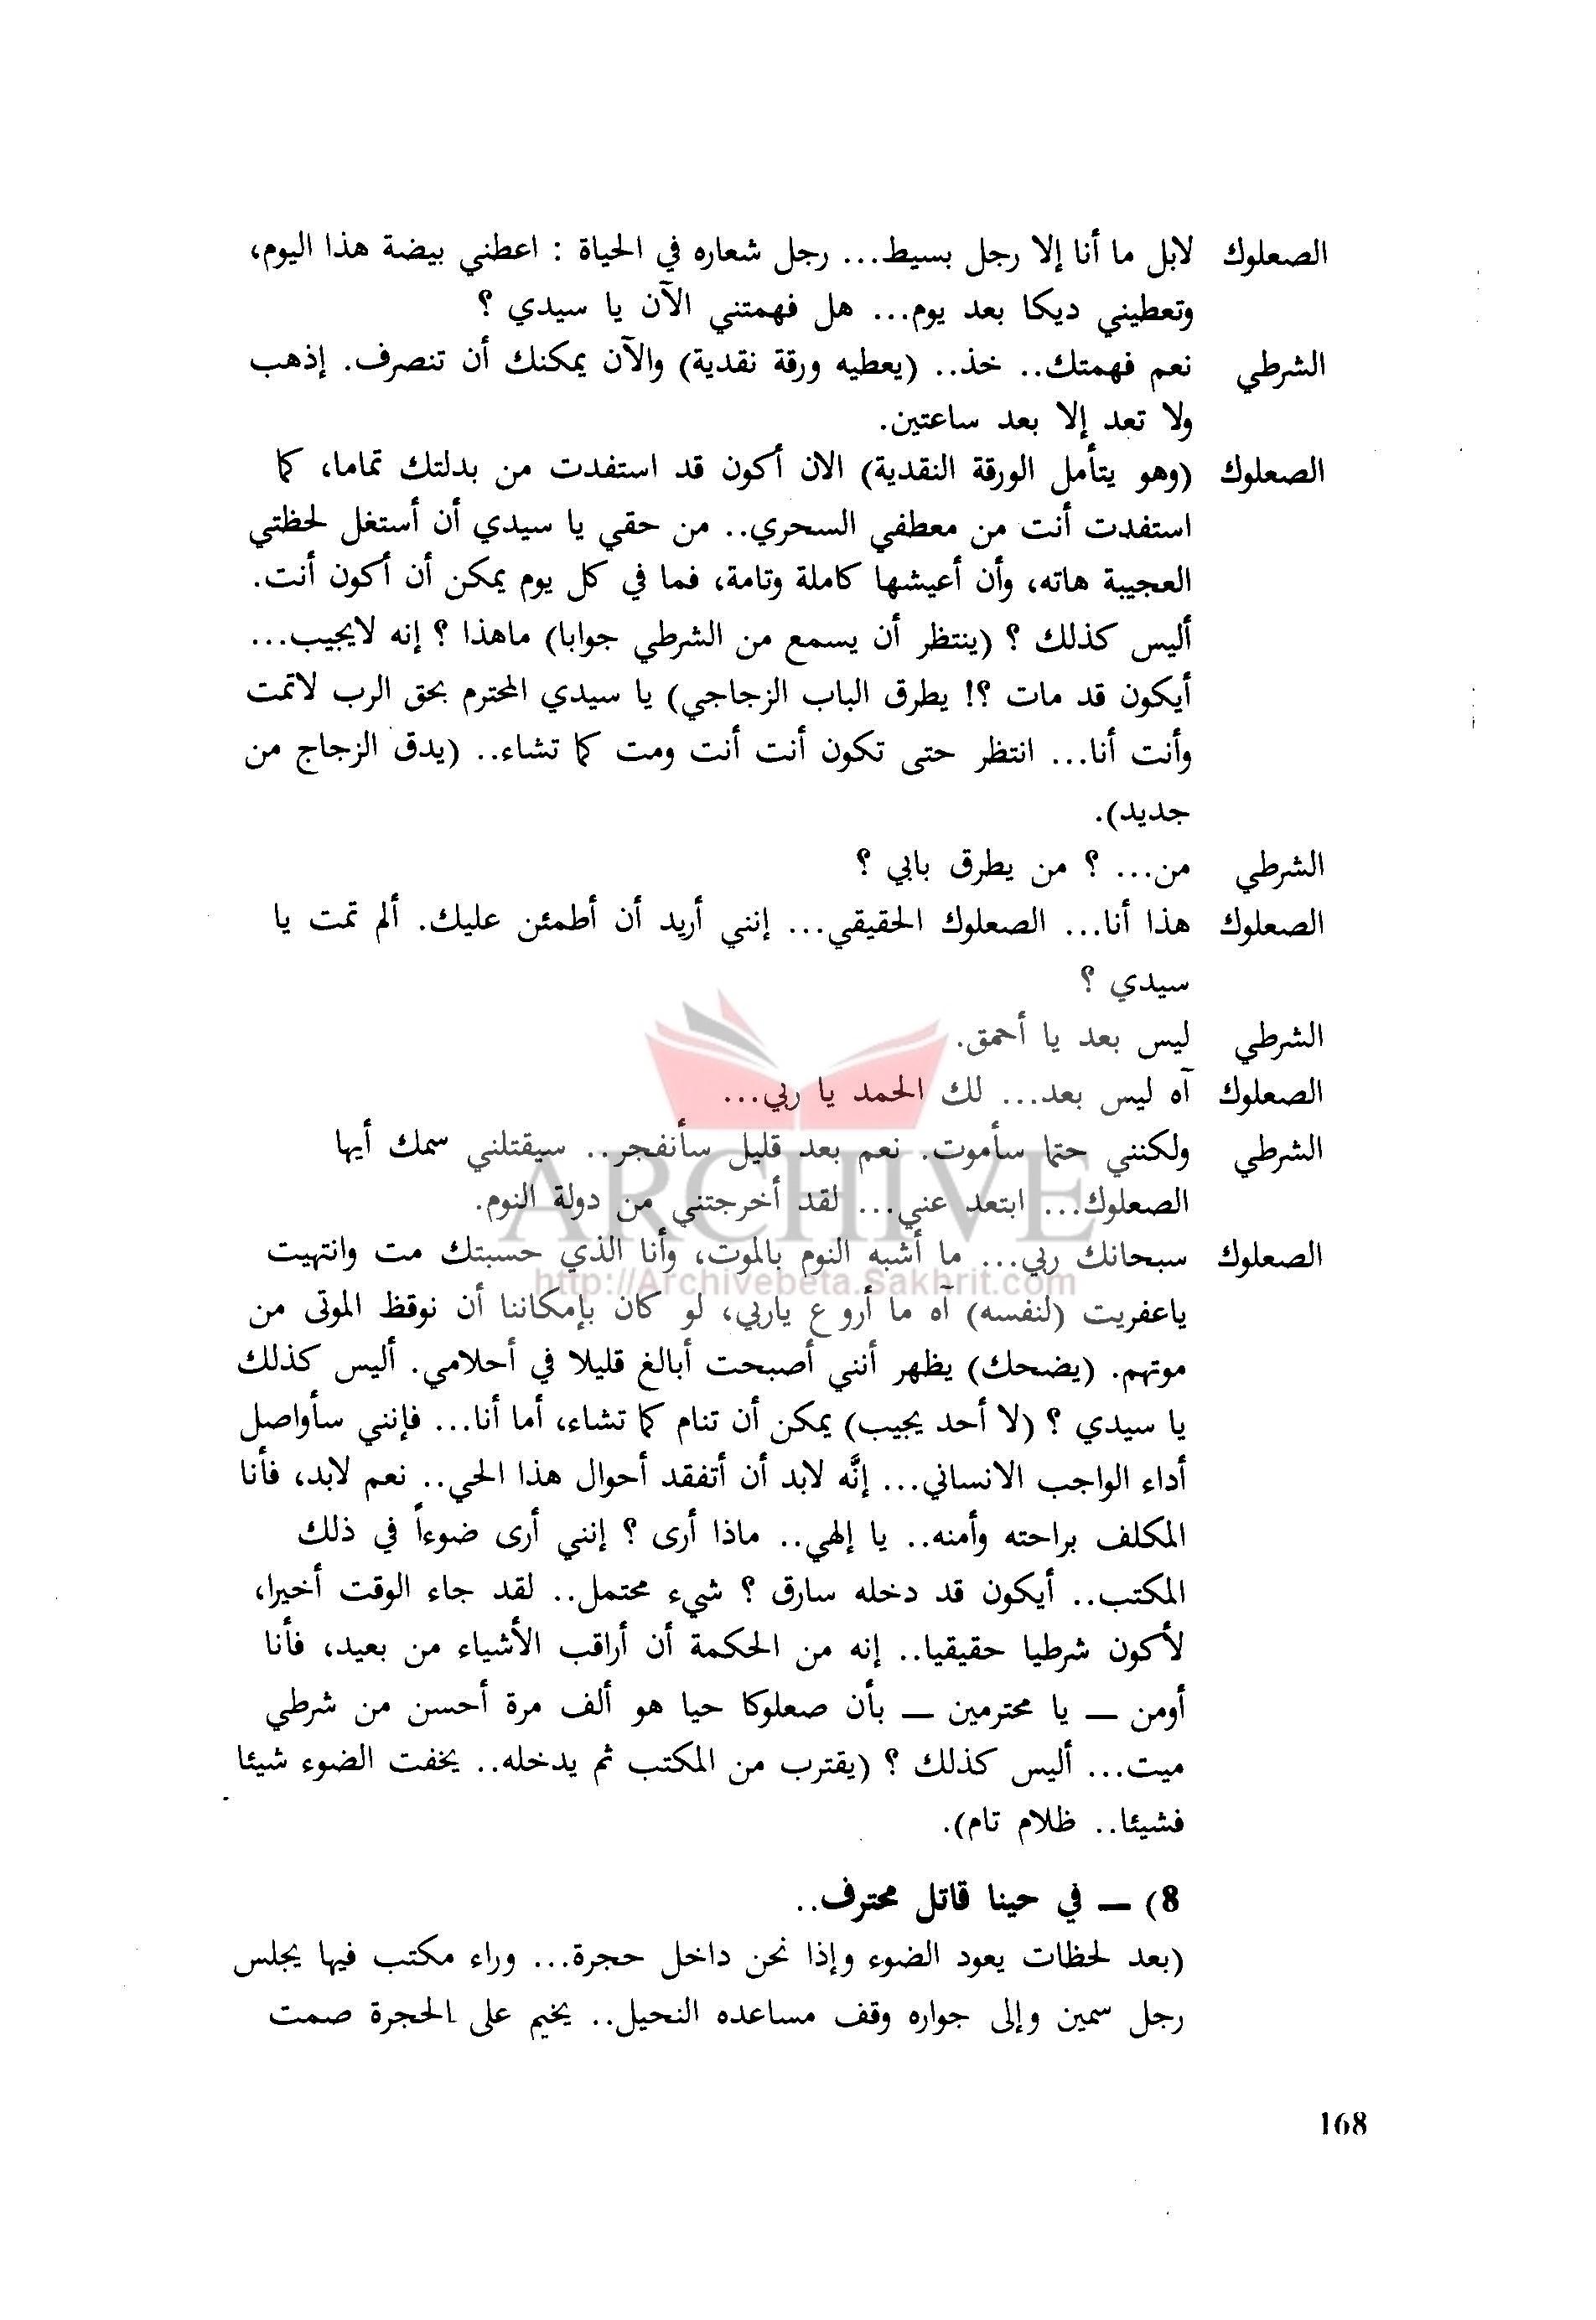 الصعلوك لابل ما أنا إلا رجل بسيط... رجل شعاره في الحياة : اعطني بيضة هذا اليوم،
وتعطيني ديكا بعد يوم... هل فهمتني الآن يا سيدي ؟
الشرطي نعم فهمتك.. خذ.. (يعطيه ورقة نقدية) والآن يمكنك أن تنصرف. إذهب
ولا تعد إلا بعد ساعتين.
الصعلوك (وهو يتأمل الورقة النقدية) الان أكون قد استفدت من بدلتك تماما، كما
استفدت أنت من معطفي السحري.. من حقي يا سيدي أن أستغل لحظتي
العجيبة هاته، وأن أعيشها كاملة وتامة، فما في كل يوم يمكن أن أكون أنت.
أليس كذلك ؟ (ينتظر أن يسمع من الشرطي جوابا) ماهذا ؟ إنه لايجيب...
أيكون قد مات ؟! يطرق الباب الزجاجي) يا سيدي المحترم بحق الرب لاتمت
وأنت أنا... انتظر حتى تكون أنت أنت ومت كما تشاء.. (يدق الزجاج من
جديد).
الشرطي من... ؟ من يطرق بابي ؟
الصعلوك هذا أنا... الصعلوك الحقيقي... إنني أريد أن أطمئن عليك. ألم تمت يا
سيدي ؟
الشرطي ليس بعد يا أحمق.
الصعلوك آه ليس بعد... لك الحمد يا ربي...
الشرطي ولكنني حتما سأموت. نعم بعد قليل سأنفجر.. سيقتلني سمك أيها
ARCHIVE
الصعلوك... ابتعد عني... لقد أخرجتني من دولة النوم.
الصعلوك سبحانك ربي... ما أشبه النوم بالموت، وأنا الذي حسبتك مت وانتهيت
http://Archivebeta.Sakhrit.com
ياعفريت (لنفسه) آه ما أروع ياربي، لو كان بإمكاننا أن نوقظ الموتى من
موتهم. (يضحك) يظهر أنني أصبحت أبالغ قليلا في أحلامي. أليس كذلك
يا سيدي ؟ (لا أحد يجيب) يمكن أن تنام كما تشاء، أما أنا... فإنني سأواصل
أداء الواجب الانساني... إنَّه لابد أن أتفقد أحوال هذا الحي.. نعم لابد، فأنا
المكلف براحته وأمنه.. يا إلهي.. ماذا أرى ؟ إنني أرى ضوءاً في ذلك
المكتب.. أيكون قد دخله سارق ؟ شيء محتمل.. لقد جاء الوقت أخيرا،
لأكون شرطيا حقيقيا.. إنه من الحكمة أن أراقب الأشياء من بعيد، فأنا
أومن — يا محترمين — بأن صعلوكا حيا هو ألف مرة أحسن من شرطي
ميت... أليس كذلك ؟ (يقترب من المكتب ثم يدخله.. يخفت الضوء شيئا
فشيئا.. ظلام تام).
8) — في حينا قاتل محترف..
(بعد لحظات يعود الضوء وإذا نحن داخل حجرة... وراء مكتب فيها يجلس
رجل سمين وإلى جواره وقف مساعده النحيل.. يخيم على الحجرة صمت
168